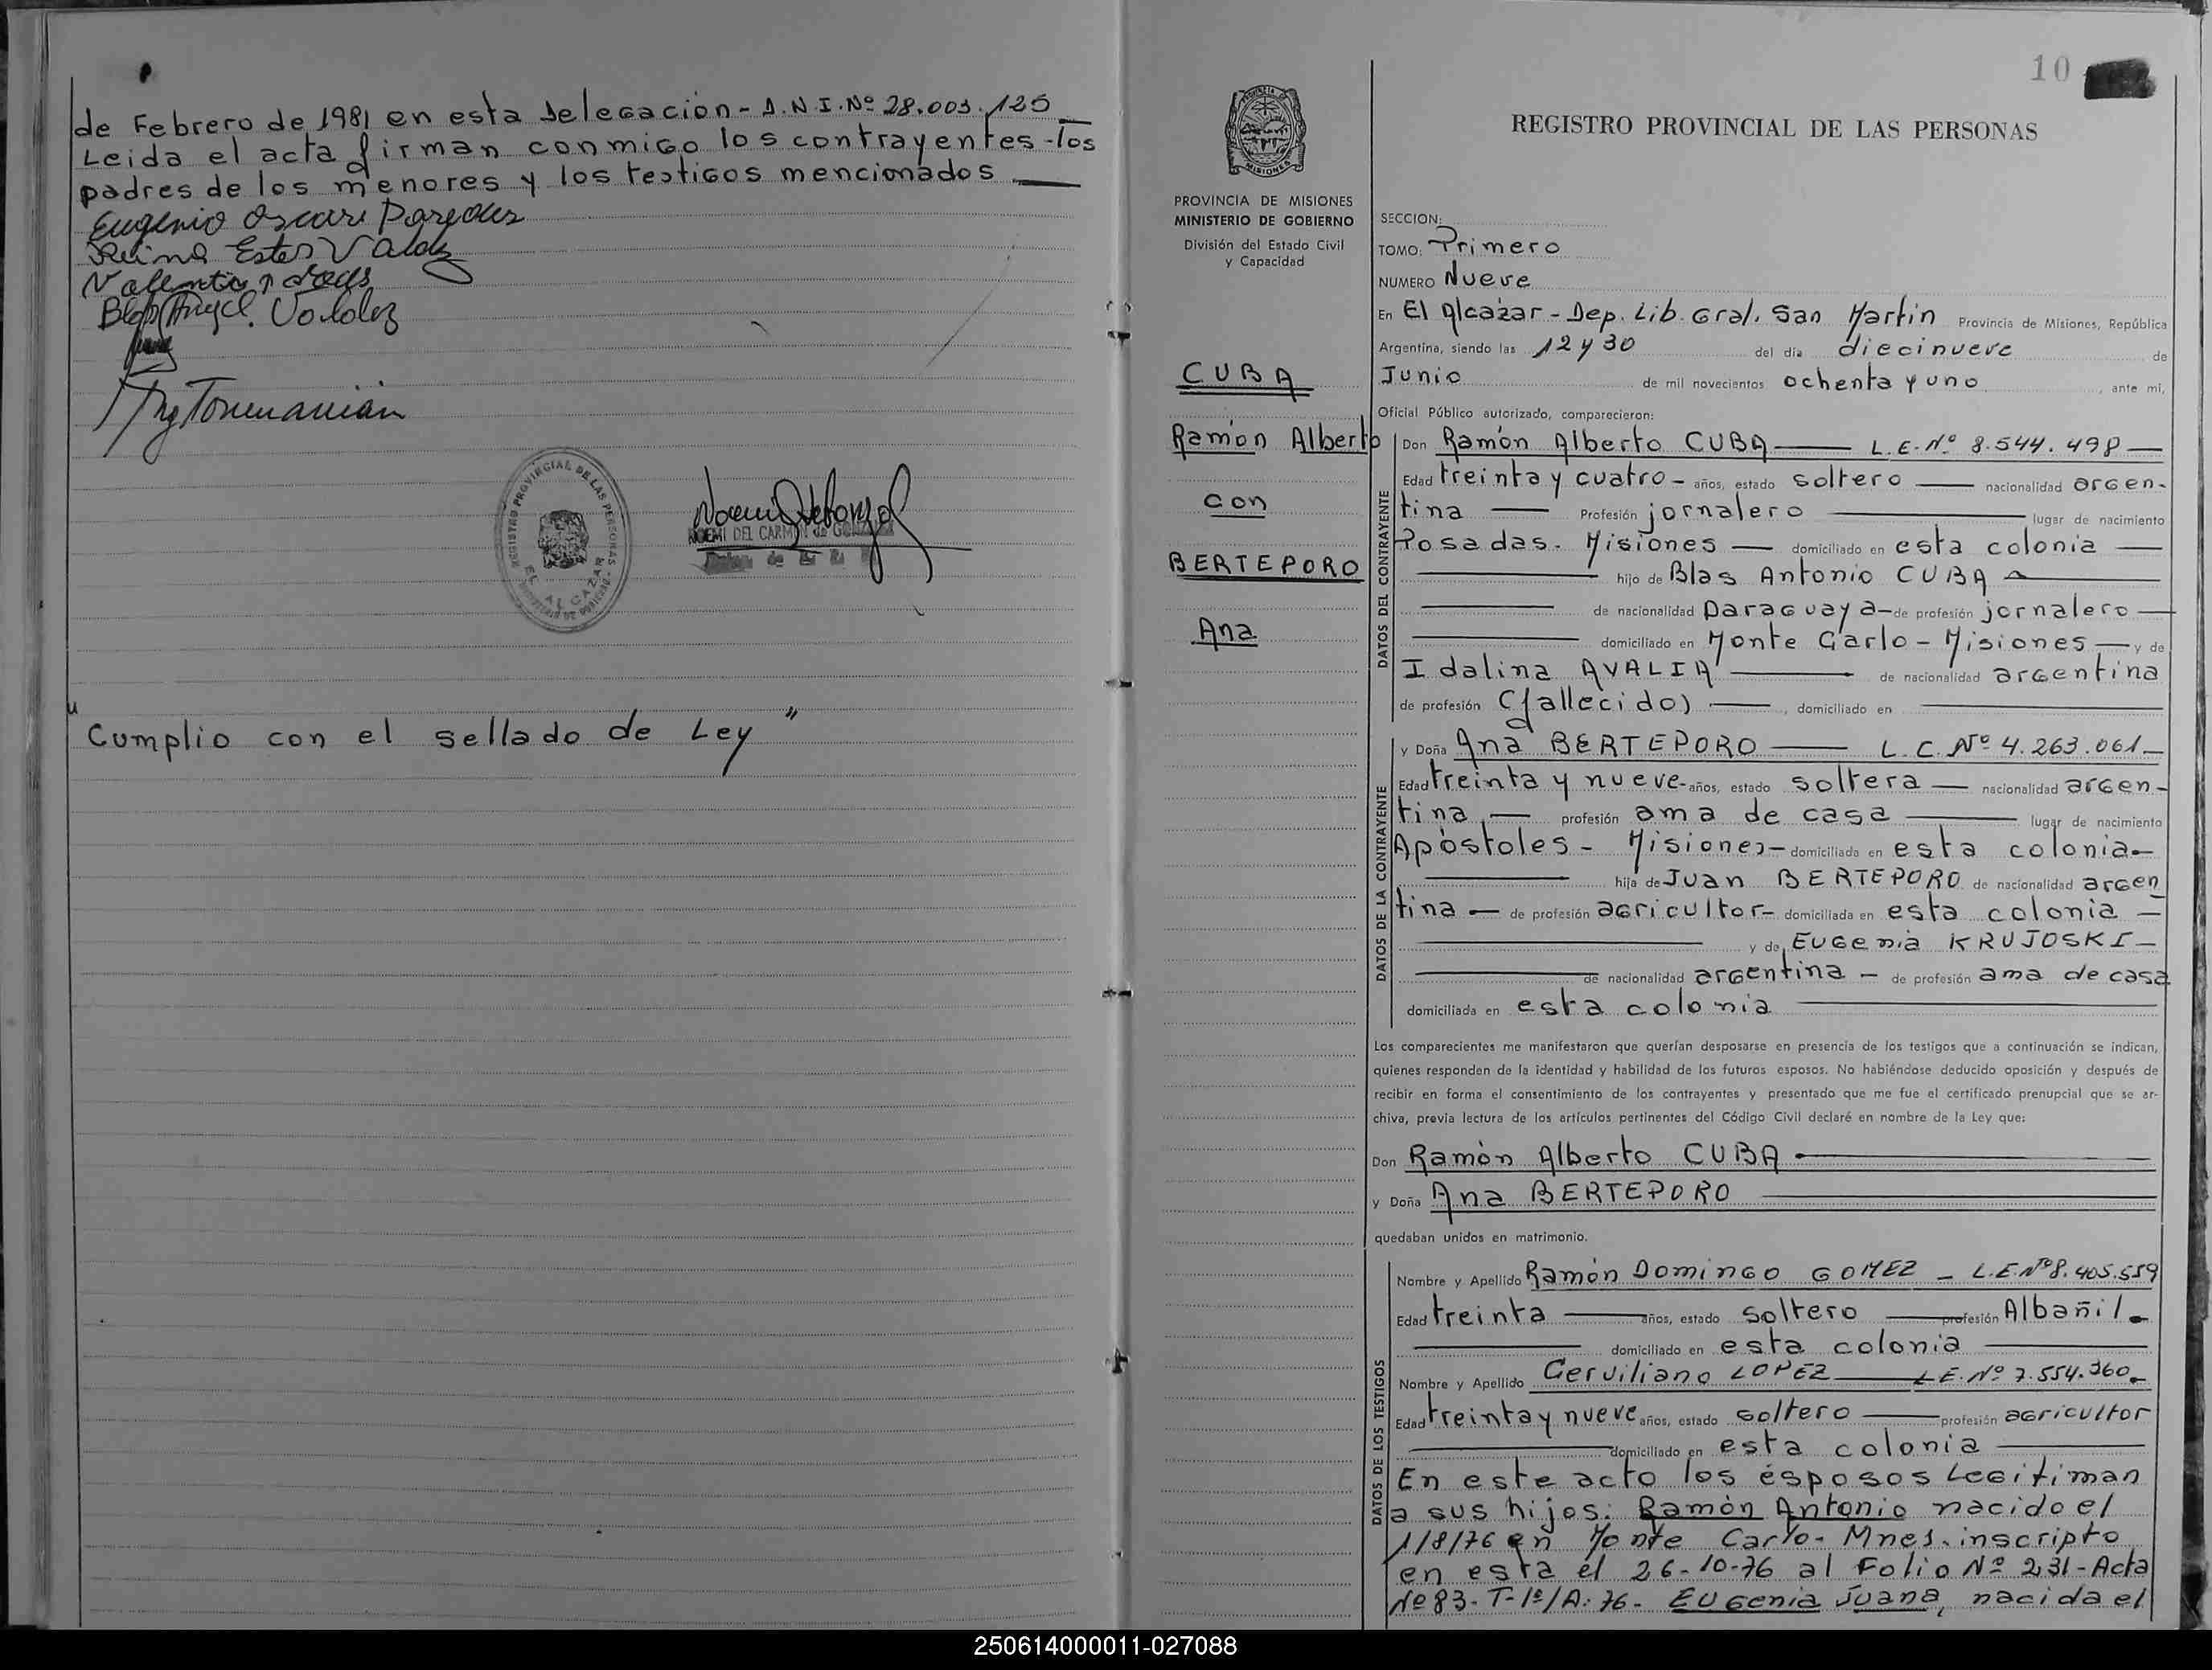 de Febrero de 1981 en esta Delegacion - D.N.I. Nº 28.003.125
Leida el acta firman conmigo los contrayentes - los
padres de los menores y los testigos mencionados
Eugenio Oscar Paredes
Reina Ester Valdez
Blas Angel Valdez
REGISTRO PROVINCIAL DE LAS PERSONAS
EL ALCAZAR
NOEMI DEL CARMEN de
"Cumplio con el sellado de Ley"
10
PROVINCIA DE MISIONES
MINISTERIO DE GOBIERNO
División del Estado Civil
y Capacidad
CUBA
Ramón Alberto
con
BERTEPORO
Ana
REGISTRO PROVINCIAL DE LAS PERSONAS
SECCION:
TOMO: Primero
NUMERO Nueve
En El Alcázar - Dep. Lib. Gral. San Martin Provincia de Misiones, República
Argentina, siendo las 12 y 30 del día diecinueve de
Junio de mil novecientos ochenta y uno, ante mí,
Oficial Público autorizado, comparecieron:
DATOS DEL CONTRAYENTE
Don Ramón Alberto CUBA L.E. Nº 8.544.498
Edad treinta y cuatro - años, estado soltero nacionalidad argen-
tina Profesión jornalero lugar de nacimiento
Posadas - Misiones domiciliado en esta colonia
hijo de Blas Antonio CUBA
de nacionalidad Paraguaya - de profesión jornalero
domiciliado en Monte Carlo - Misiones y de
Idalina AVALIA de nacionalidad argentina
de profesión (fallecido), domiciliado en
DATOS DE LA CONTRAYENTE
y Doña Ana BERTEPORO L.C. Nº 4.263.061
Edad treinta y nueve - años, estado soltera nacionalidad argen-
tina profesión ama de casa lugar de nacimiento
Apóstoles - Misiones - domiciliada en esta colonia
hija de Juan BERTEPORO de nacionalidad argen
tina de profesión agricultor - domiciliada en esta colonia
y de Eugenia KRUJOSKI
de nacionalidad argentina - de profesión ama de casa
domiciliada en esta colonia
Los comparecientes me manifestaron que querían desposarse en presencia de los testigos que a continuación se indican,
quienes responden de la identidad y habilidad de los futuros esposos. No habiéndose deducido oposición y después de
recibir en forma el consentimiento de los contrayentes y presentado que me fue el certificado prenupcial que se ar-
chiva, previa lectura de los artículos pertinentes del Código Civil declaré en nombre de la Ley que:
Don Ramón Alberto CUBA
y Doña Ana BERTEPORO
quedaban unidos en matrimonio.
DATOS DE LOS TESTIGOS
Nombre y Apellido Ramón Domingo GOMEZ - L.E. Nº 8.405.559
Edad treinta años, estado soltero profesión Albañil
domiciliado en esta colonia
Nombre y Apellido Cerviliano LOPEZ L.E. Nº 7.554.360
Edad treinta y nueve años, estado soltero profesión agricultor
domiciliado en esta colonia
En este acto los esposos Legitiman
a sus hijos: Ramón Antonio nacido el
1/8/76 en Monte Carlo - Mnes. inscripto
en esta el 26-10-76 al Folio Nº 231 - Acta
Nº 83 - T-1º/A: 76 - Eugenia Juana, nacida el
250614000011-027088